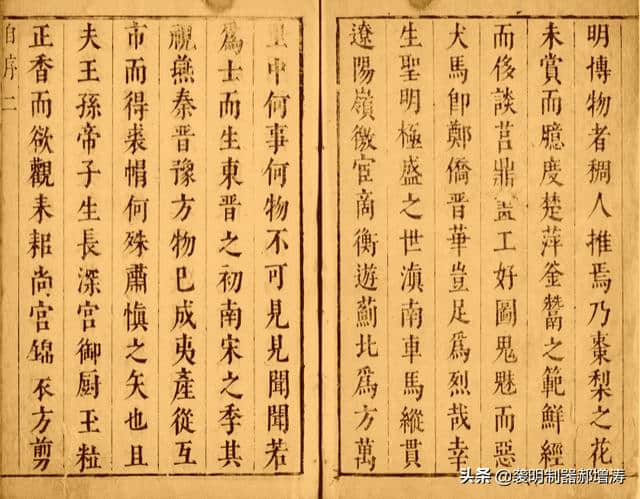 明博物者稠人推焉乃棗梨之花
未賞而臆度楚萍釜鬵之範鮮經
而侈談莒鼎畫工好圖鬼魅而惡
犬馬卽鄭僑晉華豈足爲烈哉幸
生聖明極盛之世滇南車馬縱貫
遼陽嶺徼宦商衡遊薊北爲方萬
里中何事何物不可見見聞聞若
爲士而生東晉之初南宋之季其
視燕秦晉豫方物已成夷產從互
市而得裘帽何殊肅愼之矢也且
夫王孫帝子生長深宮御厨玉粒
正香而欲觀耒耜尚宮錦衣方剪
自序二
头条 @黎明制器郝增涛